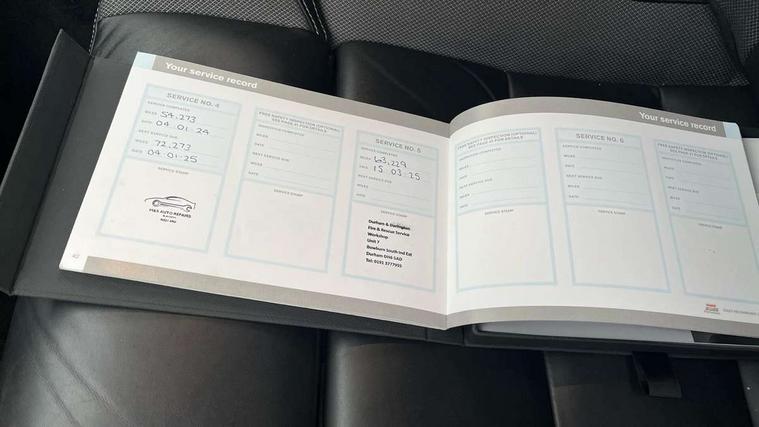 Your service record
SERVICE NO. 4
SERVICE COMPLETED
MILES 54,273
DATE 04.01.24
NEXT SERVICE DUE
MILES 72,273
DATE 04.01.25
SERVICE STAMP
M&S AUTO REPAIRS
FREE SAFETY INSPECTION (OPTIONAL)
SEE PAGE 31 FOR DETAILS
INSPECTION COMPLETED
MILES
DATE
NEXT SERVICE DUE
MILES
DATE
SERVICE STAMP
SERVICE NO. 5
SERVICE COMPLETED
MILES 63,229
DATE 15.03.25
NEXT SERVICE DUE
MILES
DATE
SERVICE STAMP
Durham & Darlington
Fire & Rescue Service
Workshop
Unit 7
Bowburn South Ind Est
Durham DH6 5AD
Tel: 0191 3777955
40
Your service record
FREE SAFETY INSPECTION (OPTIONAL)
SEE PAGE 31 FOR DETAILS
INSPECTION COMPLETED
MILES
DATE
NEXT SERVICE DUE
MILES
DATE
SERVICE STAMP
SERVICE NO. 6
SERVICE COMPLETED
MILES
DATE
NEXT SERVICE DUE
MILES
DATE
SERVICE STAMP
FREE SAFETY INSPECTION (OPTIONAL)
SEE PAGE 31 FOR DETAILS
INSPECTION COMPLETED
MILES
DATE
NEXT SERVICE DUE
MILES
DATE
SERVICE STAMP